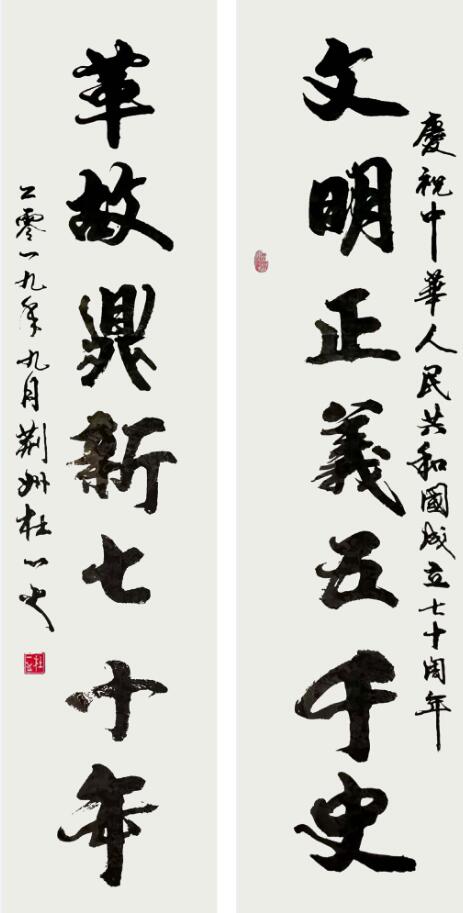 慶祝中華人民共和國成立七十周年
文明正義五千史
革故鼎新七十年
二零一九年九月荊州杜